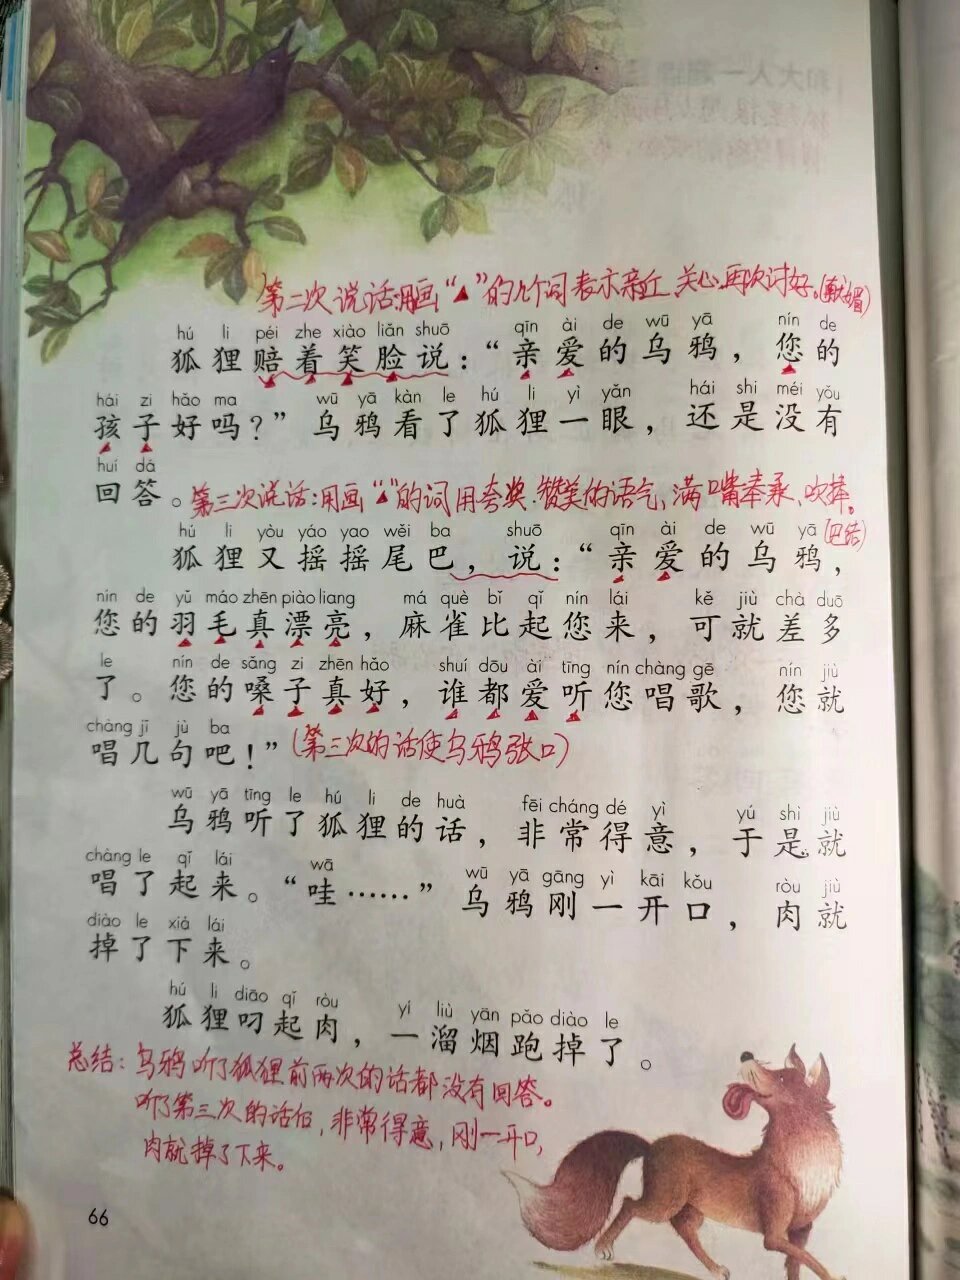 第二次说话:用画“▲”的几个词表示亲近、关心,再次讨好。(献媚)
hú li péi zhe xiào liǎn shuō qīn ài de wū yā nín de
狐狸赔着笑脸说:“亲爱的乌鸦,您的
hái zi hǎo ma wū yā kàn le hú li yì yǎn hái shi méi yǒu
孩子好吗?”乌鸦看了狐狸一眼,还是没有
huí dá
回答。
第三次说话:用画“▲”的词用夸奖、赞美的语气,满嘴奉承、吹捧。
(巴结)
hú li yòu yáo yao wěi ba shuō qīn ài de wū yā
狐狸又摇摇尾巴,说:“亲爱的乌鸦,
nín de yǔ máo zhēn piào liang má què bǐ qǐ nín lái kě jiù chà duō
您的羽毛真漂亮,麻雀比起您来,可就差多
le nín de sǎng zi zhēn hǎo shuí dōu ài tīng nín chàng gē nín jiù
了。您的嗓子真好,谁都爱听您唱歌,您就
chàng jǐ jù ba
唱几句吧!”
(第三次的话使乌鸦张口)
wū yā tīng le hú li de huà fēi cháng dé yì yú shì jiù
乌鸦听了狐狸的话,非常得意,于是就
chàng le qǐ lái wā wū yā gāng yì kāi kǒu ròu jiù
唱了起来。“哇……”乌鸦刚一开口,肉就
diào le xià lái
掉了下来。
hú li diāo qǐ ròu yí liù yān pǎo diào le
狐狸叼起肉,一溜烟跑掉了。
总结:乌鸦听了狐狸前两次的话都没有回答。
听了第三次的话后,非常得意,刚一开口,
肉就掉了下来。
66